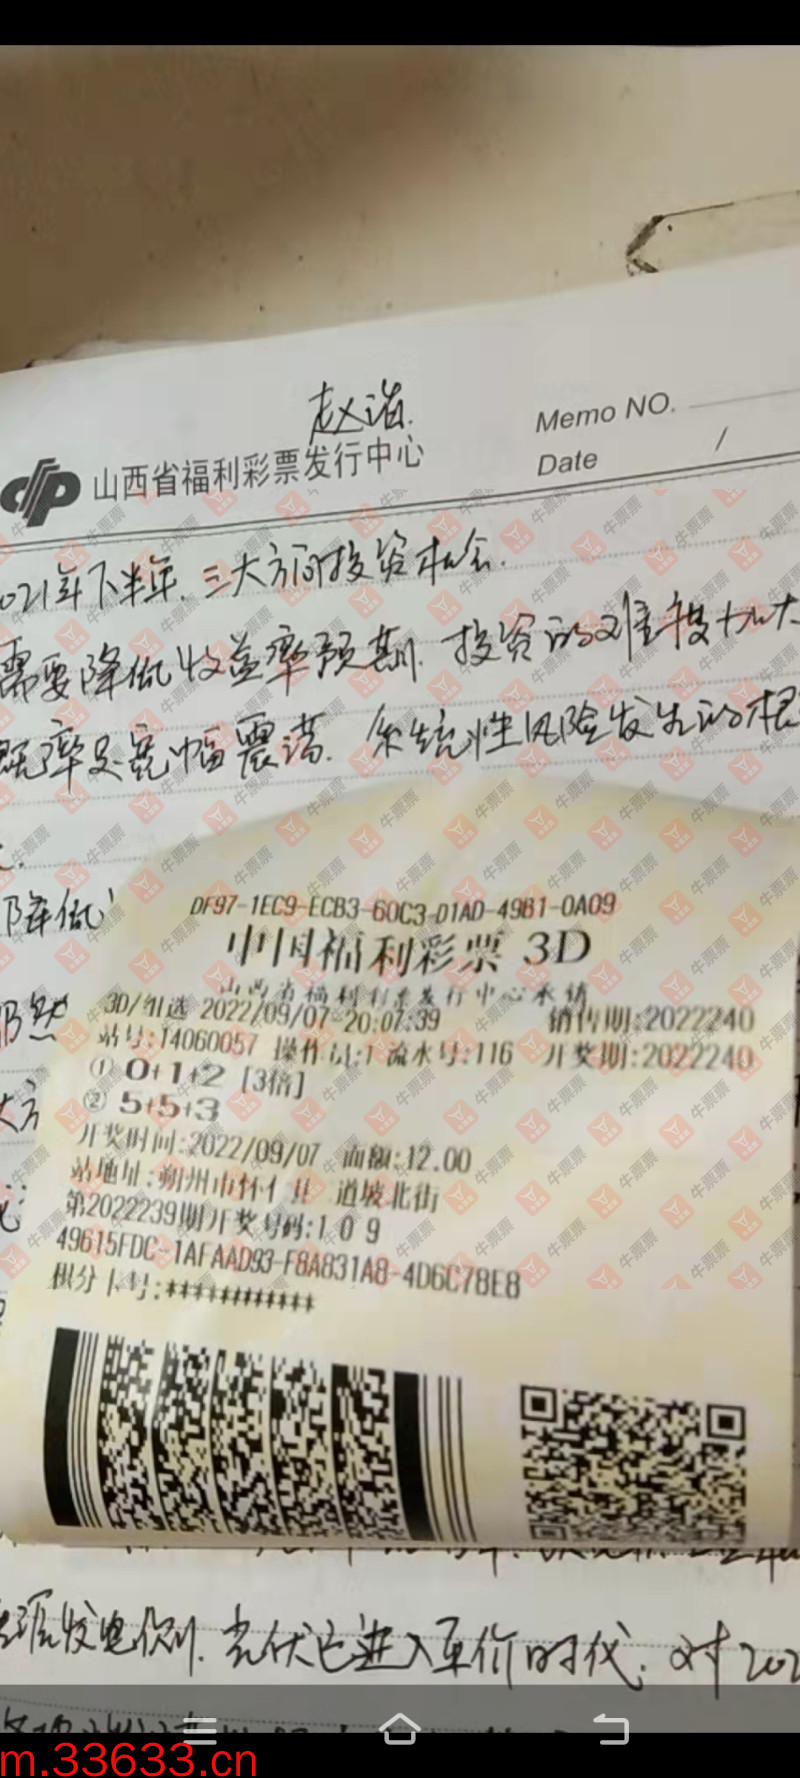 赵诣.
Memo NO.
山西省福利彩票发行中心
Date /
021年下半年.三大方向投资机会.
需要降低收益率预期.投资的难度加大
概率是宽幅震荡.系统性风险发生的概
降低
仍然
大方
DF97-1EC9-ECB3-60C3-D1AD-49B1-0A09
中国福利彩票 3D
山西省福利彩票发行中心承销
3D/组选 2022/09/07-20:07:39 销售期:2022240
站号:14060057 操作员:1 流水号:116 开奖期:2022240
① 0+1+2 [3倍]
② 5+5+3
开奖时间:2022/09/07 面额:12.00
站地址:朔州市怀仁县 道坡北街
第2022239期开奖号码:1 0 9
49615FDC-1AFAAD93-F8A831A8-4D6C78E8
积分卡号:************
发电侧.光伏已进入平价时代.对202
m.33633.cn
牛票票